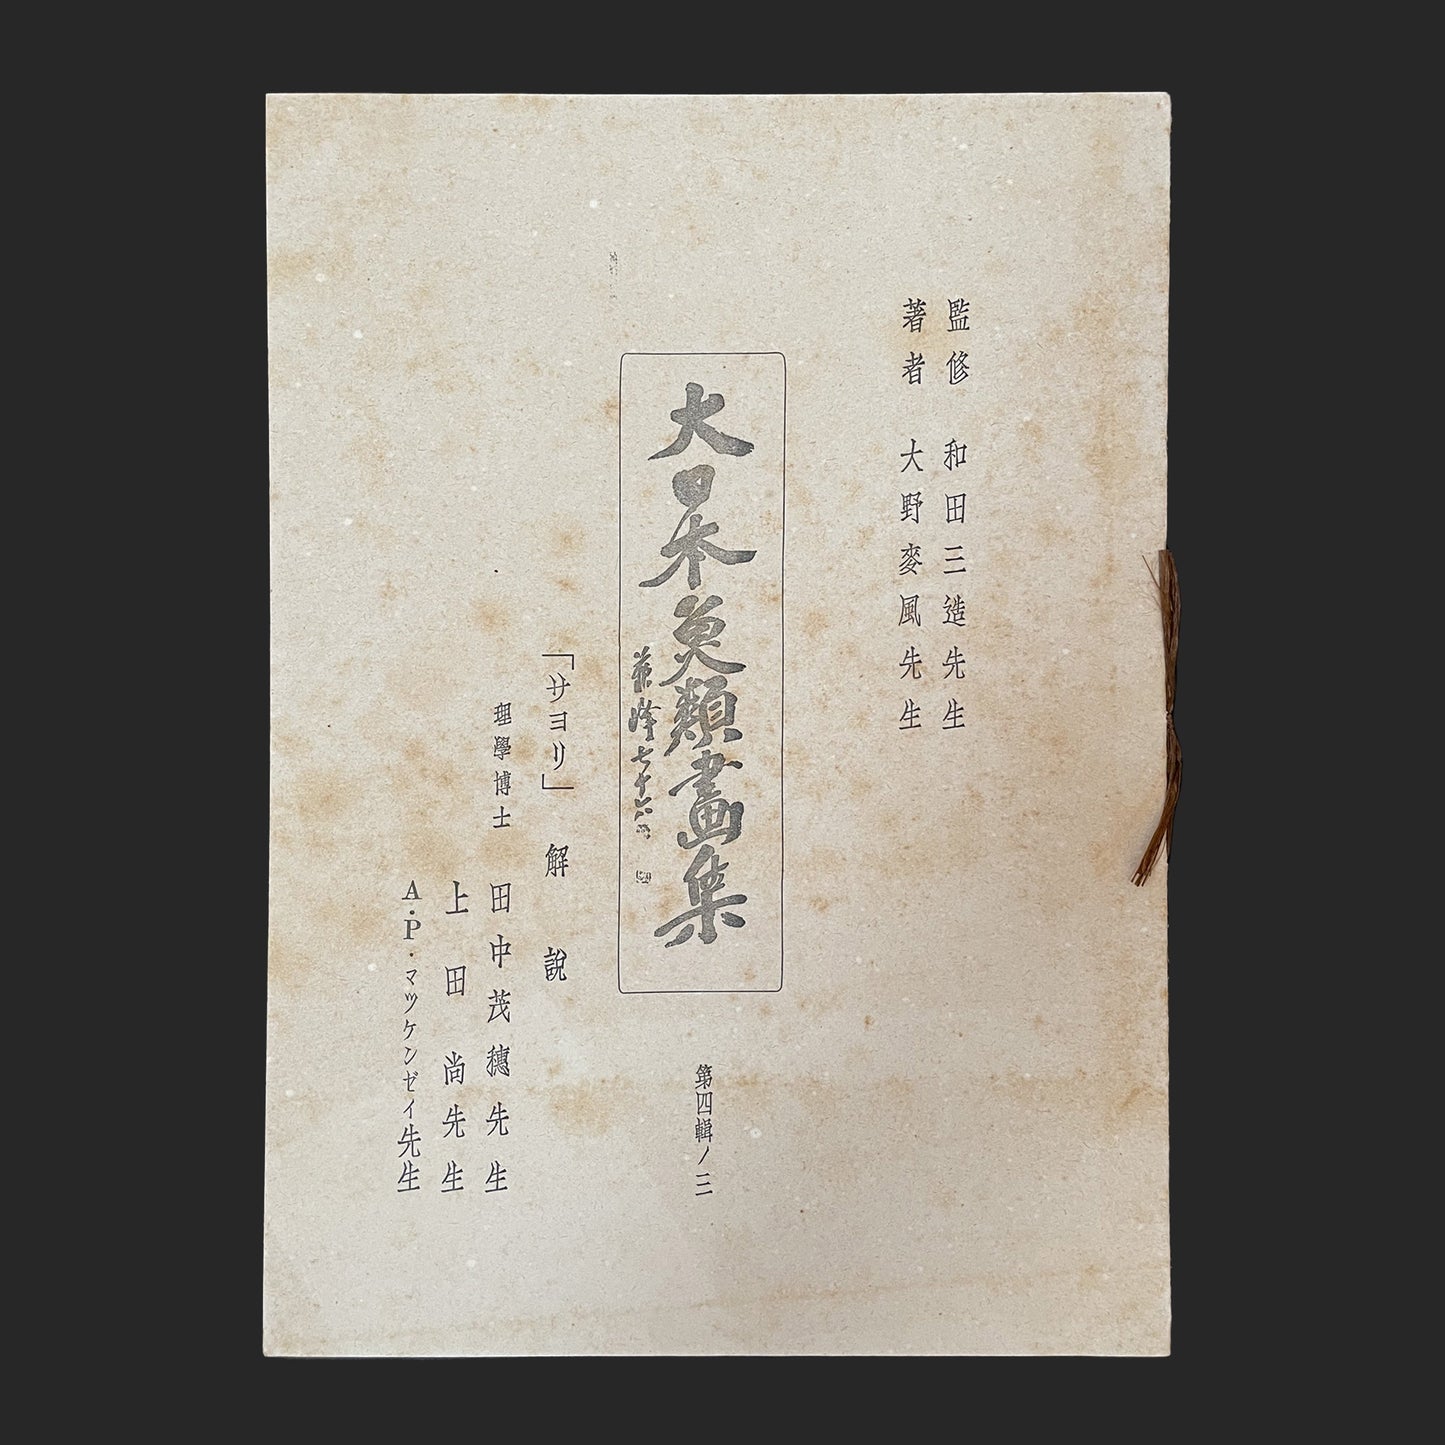 監修 和田三造先生
著者 大野麥風先生
大日本魚類畫集
蘇峰七十六
第四輯ノ三
「サヨリ」 解説
理學博士 田中茂穗先生
上田尚先生
A・P・マツケンゼイ先生